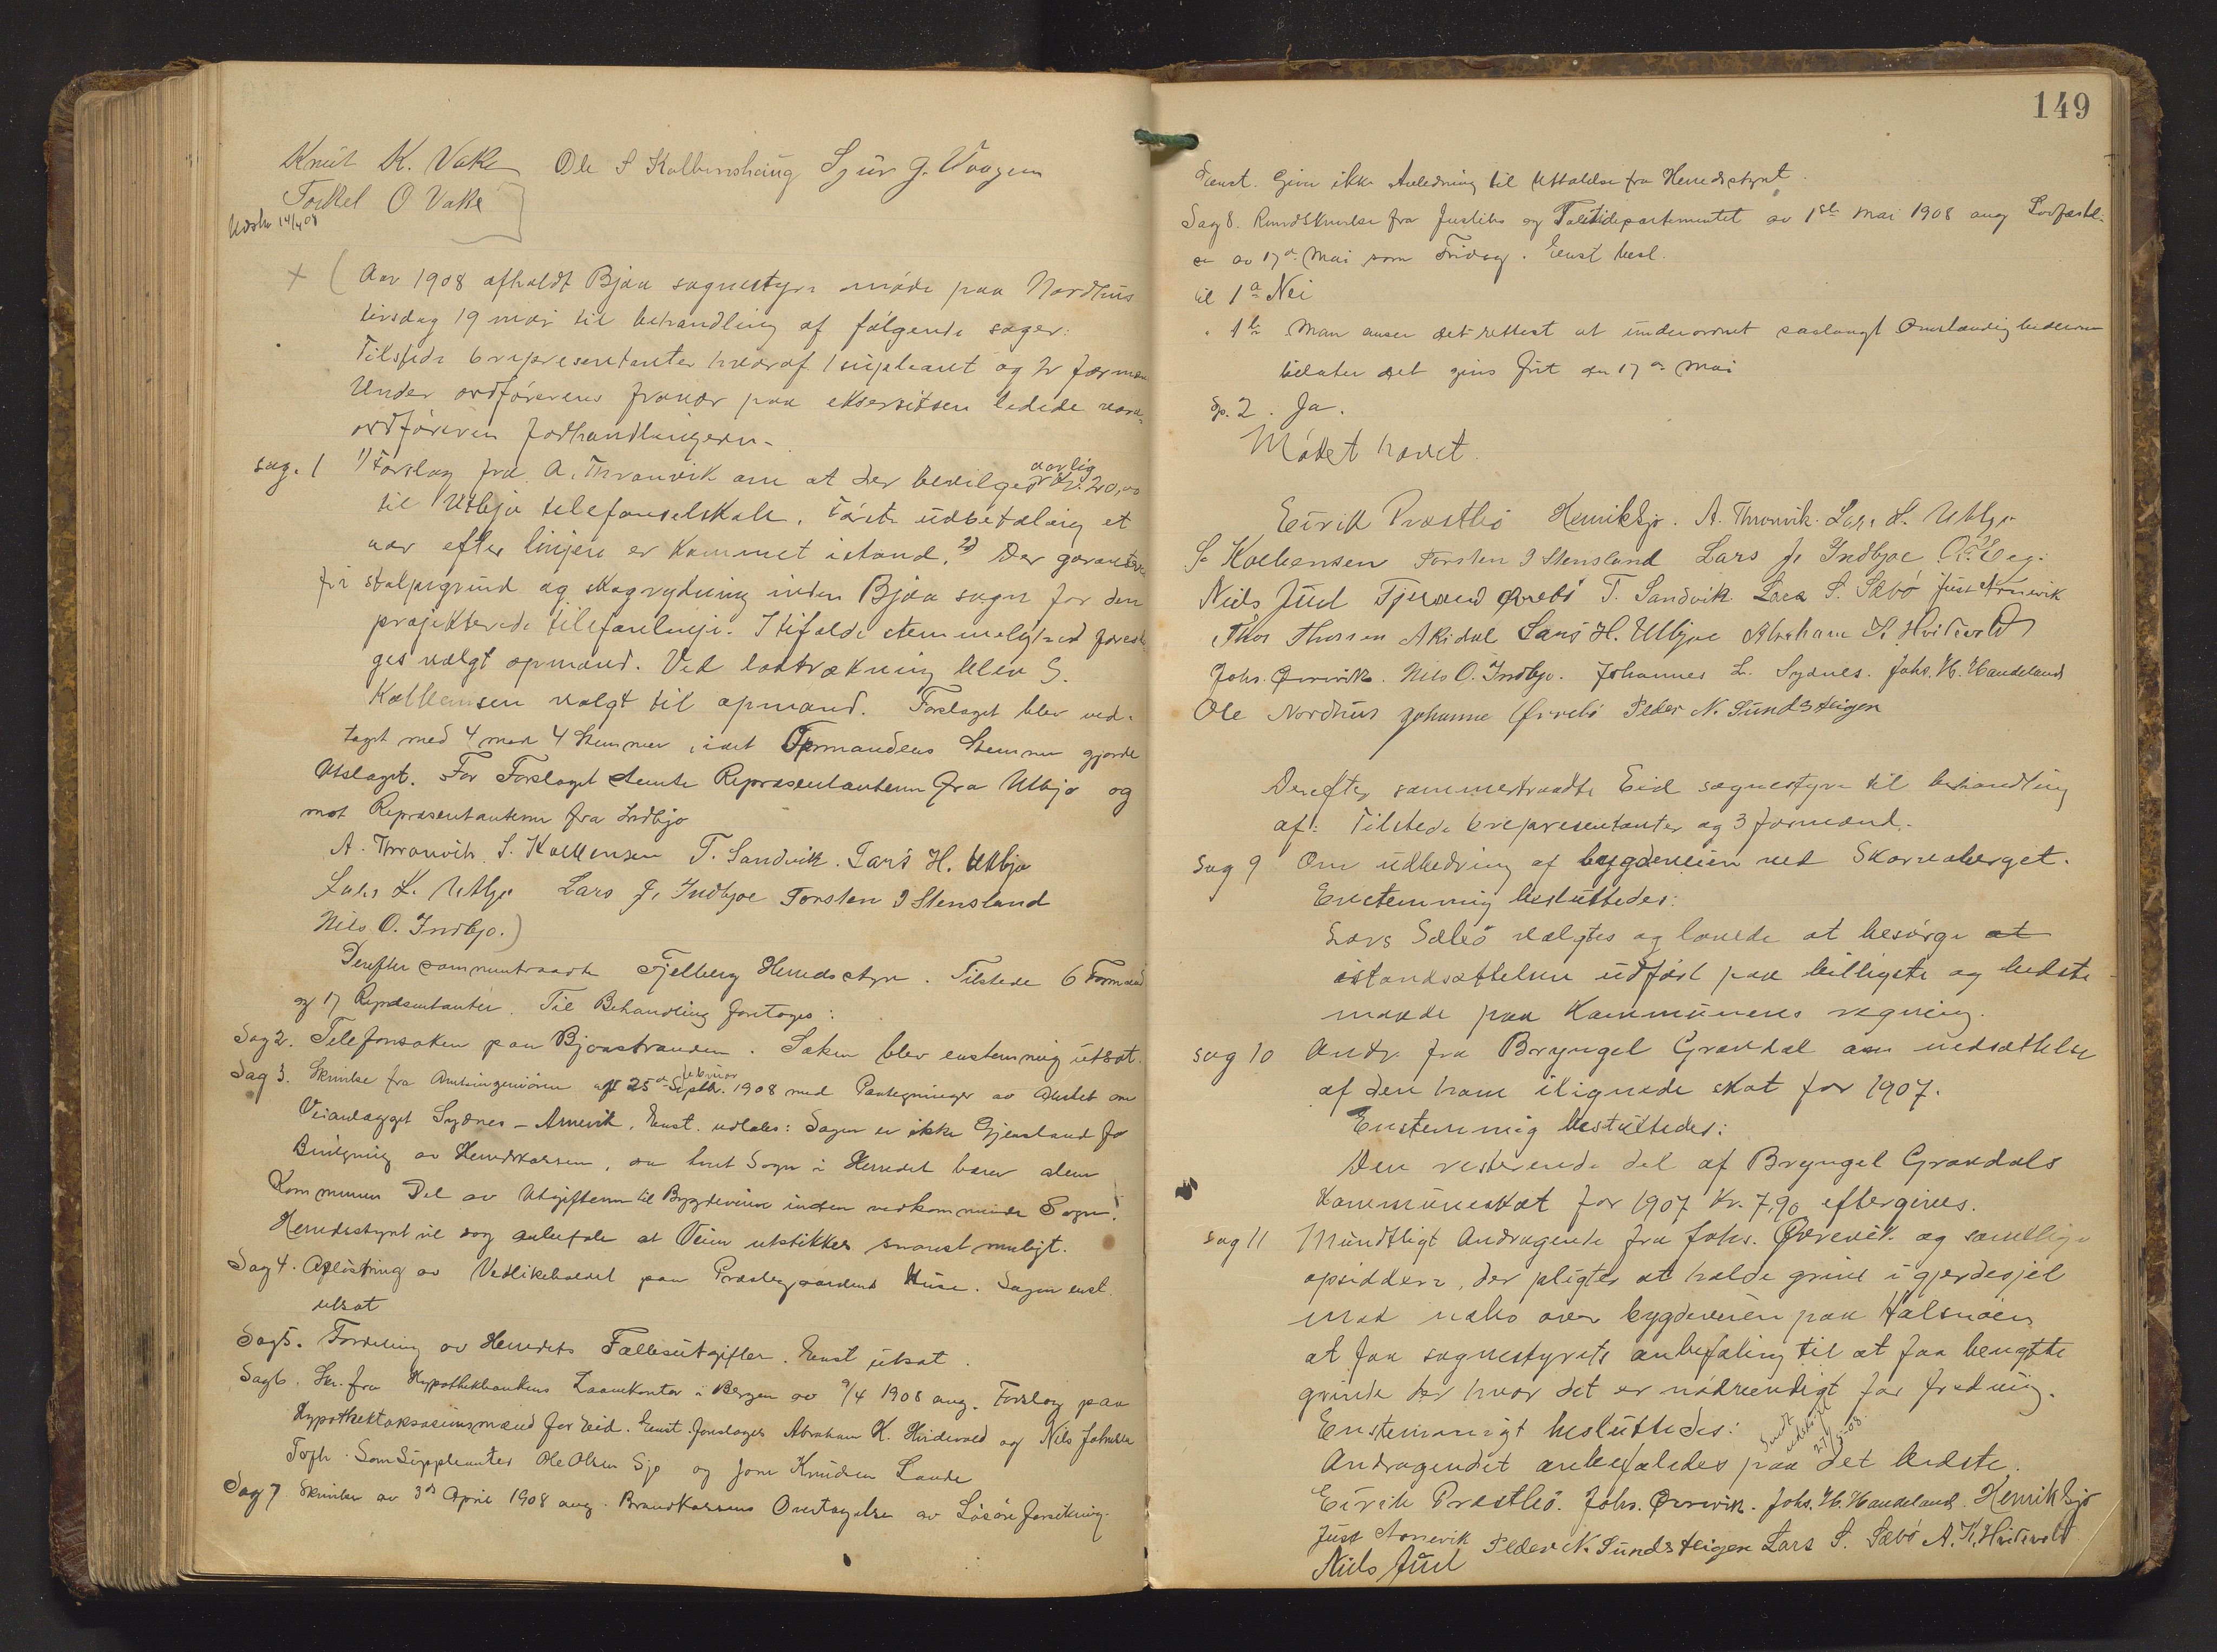 Knut K. Vake Ole S Kolbenshaug Sjur J. Vaagen
Torkel O Vake
14/4 08
+ (Aar 1908 afholdt Bjoa sognestyre møde paa Nordhus
tirsdag 19 mai til behandling af følgende sager:
Tilstede 6 representanter hvoraf 1 supleant og 2 formæn
Under ordførerens fravær paa eksersitsen ledede vara-
ordføreren forhandlingern-
sag. 1 1) Forslag fra A. Thronvik om at der bevilges aarlig kr. 20,00
til Utbjo telefonselskab. Første udbetaling et
aar efter linjen er kommet istand. 2) Der garanteres
fri stolpegrund og skogrydning inden Bjoa sogn for den
projekterede telefonlinje. I tifælde stemmelighed foreta-
ges valgt opmand. Ved lodtrækning blev S.
Kolbensen valgt til opmand. Forslaget blev ved-
taget med 4 mod 4 Stemmer, idet Formandens Stemme gjorde
Utslaget. For Forslaget stemte Repræsentanterne fra Utbjo og
mot Repræsentanterne fra Indbjo
A. Thronvik. S. Kolbensen T. Sandvik. Lars H. Utbjo
Lars L. Utbjo Lars J. Indbjoe Torsten I Stensland
Nils O. Indbjo.)
Derefter sammentraadte Fjelberg Herredsstyre. Tilstede 6 Formænd
og 17 Repræsentanter. Til Behandling foretoges:
Sag 2. Telefonsaken paa Bjoastranden. Saken blev enstemmig utsat.
Sag 3. Skrivelse fra Amtsingeniøren af 25de Septbr. februar 1908 med Paategninger av Amtet om
Veianlægget Sydnes - Arnevik. Enst. udtales: Sagen er ikke Gjenstand for
Bevilgning av Herredskassen, da hvert Sogn i Herredet bærer alene
Kommunens Del av Utgifterne til Bygdeveiene inden vedkommende Sogn.
Herredsstyret vil dog anbefale at Veien utstikkes snarest muligt.
Sag 4. Avløsning av Vedlikeholdet paa Præstegaardens Huse. Sagen enst.
utsat
Sag 5. Fordeling av Herredets Fællesutgifter. Enst utsat.
Sag 6. Skr. fra Hypothekbankens Laanekontor i Bergen av 9/4 1908 ang. Forslag paa
Hypothektaksationsmænd for Eid. Enst. foreslages Abraham K. Hvidevold og Nils Johnsen
Tofte. Som Suppleanter Ole Olsen Sjo og Jorn Knudsen Lande
Sag 7 Skrivelse av 3de April 1908 ang. Brandkassens Overtagelse av Løsøreforsikring.
149
Enst. Giver ikke Anledning til Uttalelse fra Herredsstyret.
Sag 8. Rundskrivelse fra Justits og Politidepartementet av 1ste Mai 1908 ang Lovfæstel-
se av 17de Mai som Fridag. Enst besl.
til 1a Nei
" 1b Man anser det rettest at underordnet saalangt Omstændighederne
tillater det gives frit den 17de Mai
Sp. 2. Ja.
Mødet hævet.
Eirik Præstbø Henrik Sjo. A. Thronvik. Lars L. Utbjo
S. Kolbensen Torsten I Stensland Lars J. Indbjoe
Niels Juul Tjerand Øvrebø T. Sandvik Lars S. Sæbø Just Arnevik
Thor Thorsen Akidal Lars H. Utbjoe Abraham K. Hvidevold
Johs. Ørrevik. Nils O. Indbjo. Johannes L. Sydnes. Johs. H. Handeland
Ole Nordhus Johannes Øvrebø Peder N. Sundsteigen
Derefter sammentraadte Eid sognestyre til behandling
af: Tilstede 6 representanter og 3 formænd.
Sag 9 Om udbedring af bygdeveien ved Skorneberget.
Enstemmig besluttedes:
Lars Sæbø valgtes og lovede at besørge at
istandsættelsen udført paa billigste og bedste
maade paa Kommunens regning.
Sag 10 Andr. fra Bryngel Gravdal om nedsættelse
af den ham ilignede skat for 1907.
Enstemmig besluttedes:
Den resterende del af Bryngel Gravdals
kommuneskat for 1907 kr. 7,90 eftergives.
Sag 11 Mundtligt Andragende fra Johs. Ørrevik. og samtlige
opsiddere, der pligtes at holde grind i gjerdesjel
med nabo over bygdeveien paa Halsnøen
at faa sognestyrets anbefaling til at faa benytte
grinde der hvor det er nødvendigt for fredning.
Enstemmigt besluttedes:
Sendt udskrift 27/5-08.
Andragendet anbefaledes paa det bedste.
Eirik Præstbø. Johs. Ørrevik. Johs. H. Handeland. Henrik Sjo
Just Arnevik Peder N. Sundsteigen Lars S. Sæbø A. K. Hvidevold
Niels Juul